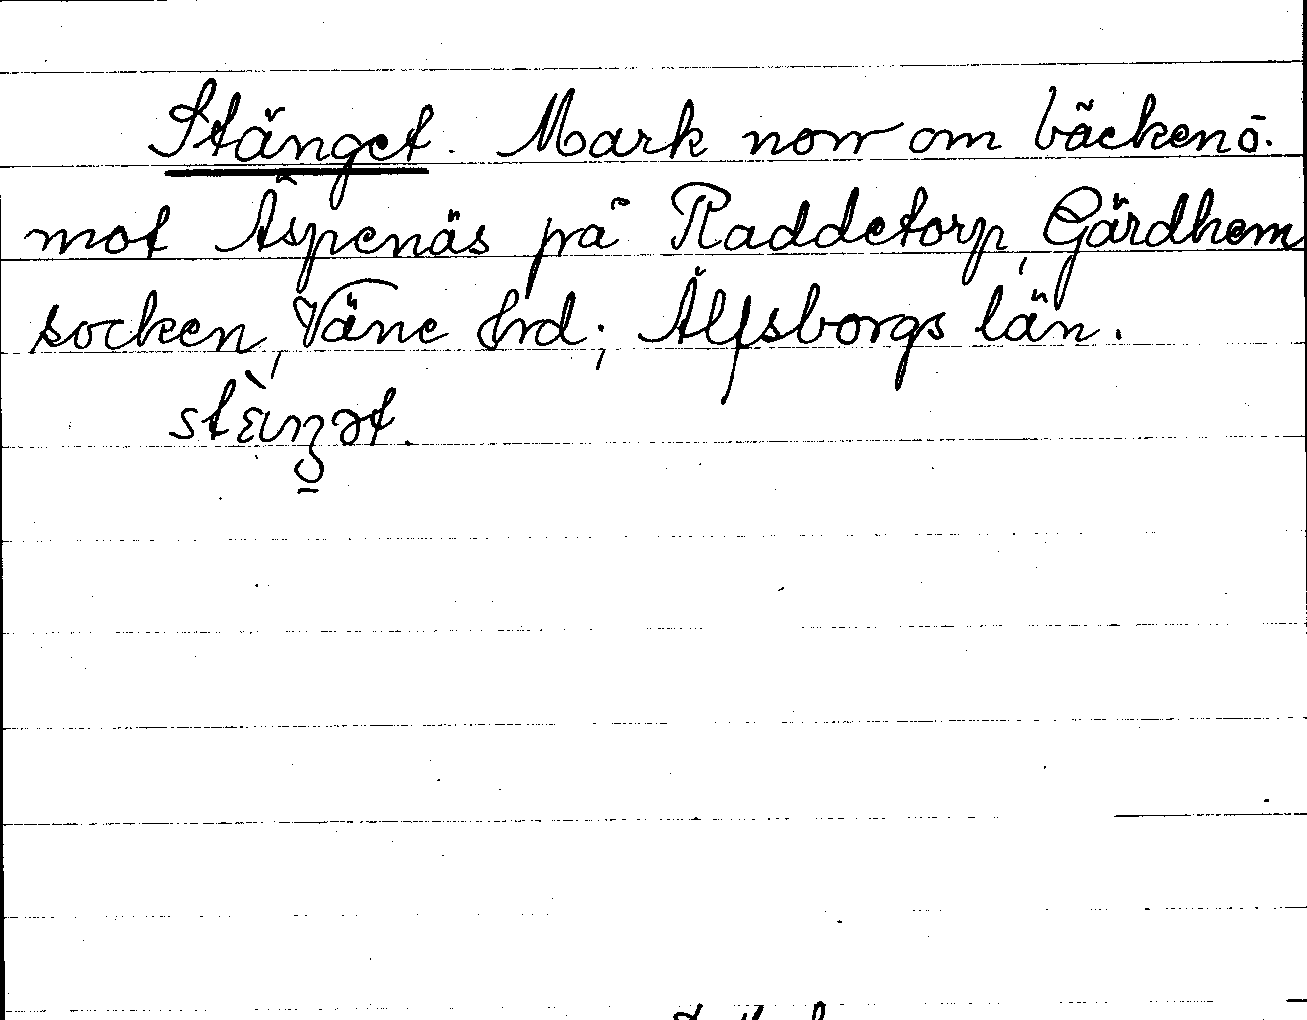 Stänget. Mark norr om bäcken ö.
mot Äspenäs på Raddetorp, Gärdhem
socken, Väne hrd; Älfsborgs län.